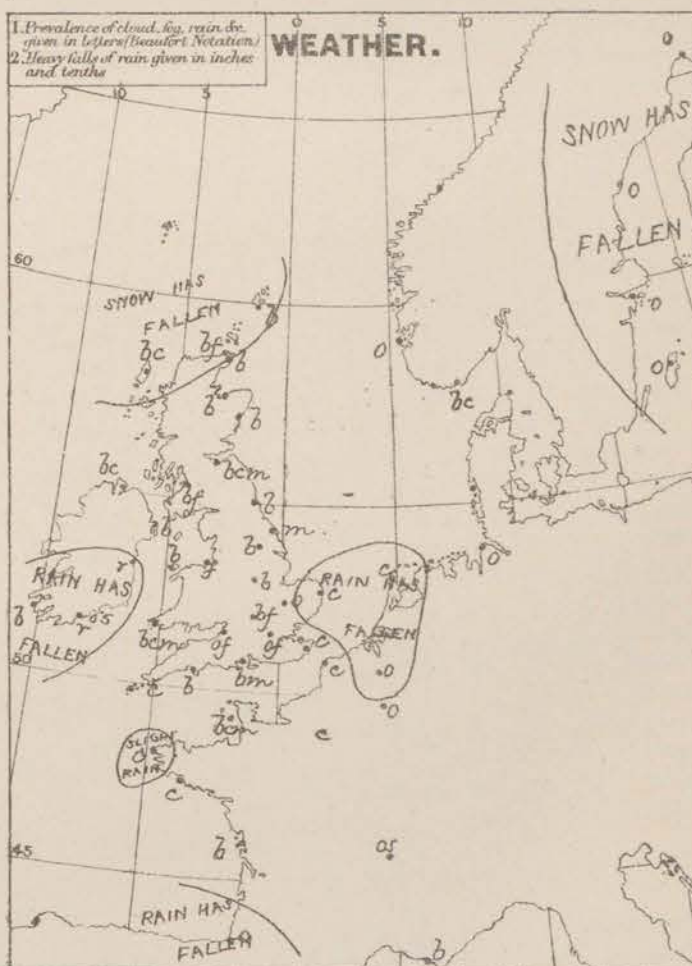 1. Prevalence of cloud, fog, rain &c.
given in letters (Beaufort Notation)
2. Heavy falls of rain given in inches
and tenths
WEATHER.
10 5 0 5 10
0
SNOW HAS
0
FALLEN
60
SNOW HAS
FALLEN
0
bc bf 2 b
0
0
b b
bc
bc bcm
bf b
b m
b f b
0
r
RAIN HAS
c
RAIN HAS
b
c
b
r
05
bf
FALLEN
FALLEN
bcm of of c
50
c b bm c
0
0
bcm
c
SLIGHT
RAIN
c
45
b
05
RAIN HAS
FALLEN
b